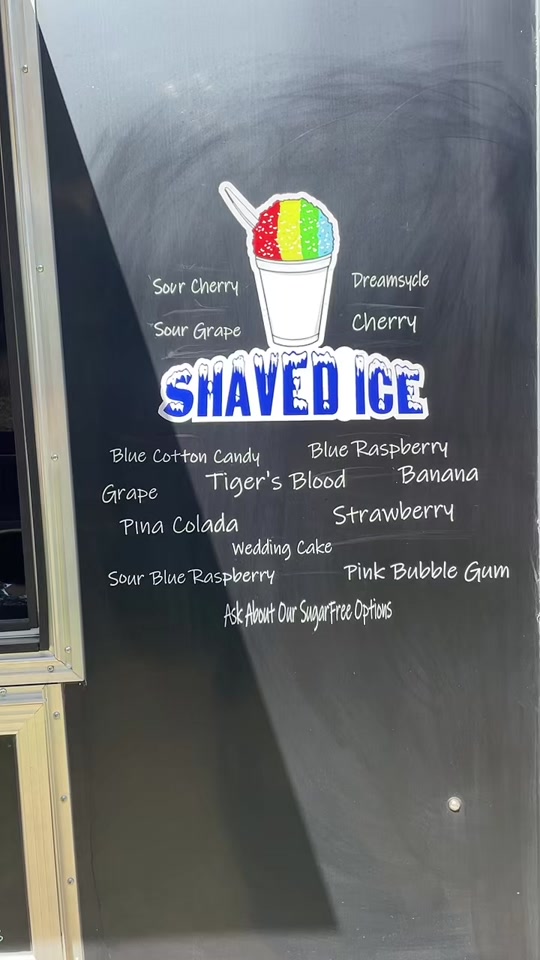 Sour Cherry
Dreamsycle
Sour Grape
Cherry
SHAVED ICE
Blue Cotton Candy
Blue Raspberry
Tiger's Blood
Banana
Grape
Strawberry
Pina Colada
Wedding Cake
Sour Blue Raspberry
Pink Bubble Gum
Ask About Our SugarFree Options